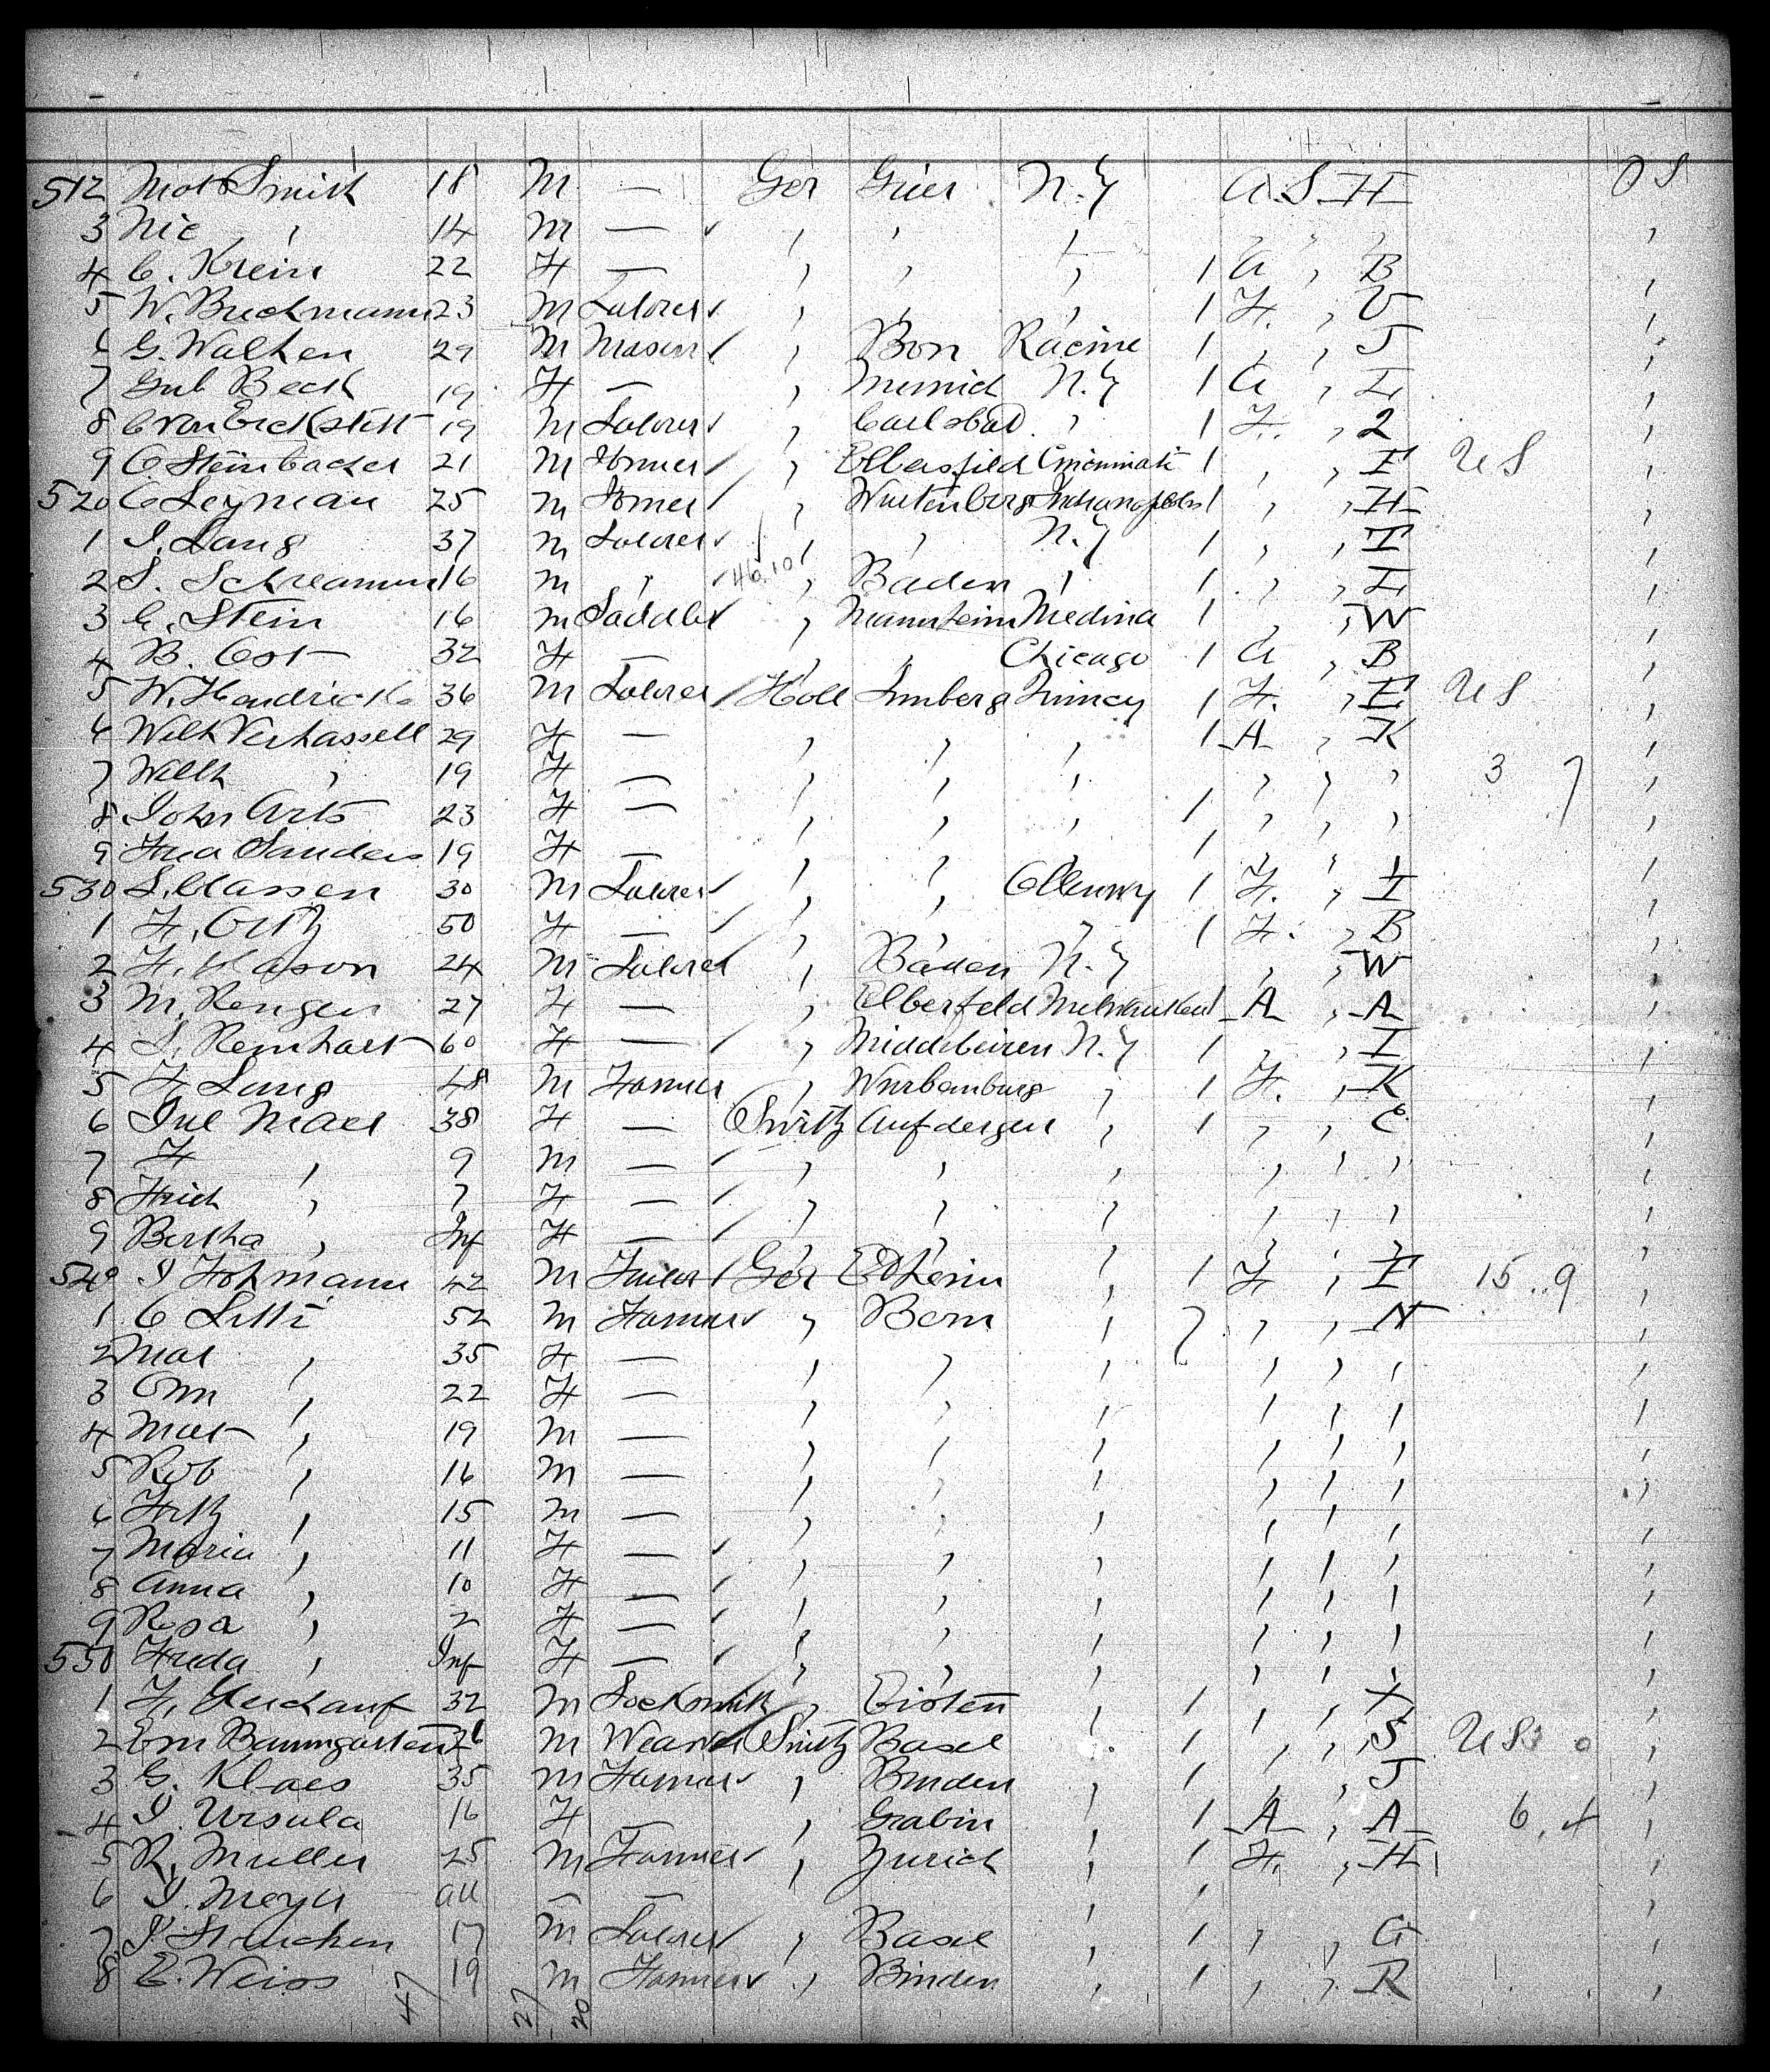 512 Mat Smith 18 M — Ger Grier N.Y A.S. H O S
3 Nic , 14 M — , , , , , , ,
4 C. Krein 22 F — , , , 1 A , B ,
5 W. Bruchmann 23 M Laborer , , , 1 F. , V ,
6 G. Walken 29 M Mason , Bon Racine 1 , , J ,
7 Beck 19 F — , Munich N.Y 1 A , L ,
8 C van Eickstett 19 M Laborer , Carlsbad , 1 F. , 2 ,
9 C Steinbacher 21 M Farmer , Elbersfield Cincinnati 1 , , I U S ,
520 C Leyman 25 M Farmer , Wurtenberg Indianapolis 1 , , H ,
1 J. Lang 37 M Laborer , , N.Y 1 , , I ,
2 S. 16 M , 46.10 , Baden , 1 , , L ,
3 C. Stein 16 M Saddler , Mannheim Medina 1 , , W ,
4 B. Ost 32 F — , , Chicago 1 A , B ,
5 W. Hendricks 36 M Laborer Holl Limberg Quincy 1 F. , E U S ,
6 Wilh Verhassell 29 F — , , , 1 A , K ,
7 Wilh , 19 F — , , , , , , 3 7 ,
8 John Arts 23 F — , , , 1 , , , ,
9 Sanders 19 F — , , , 1 , , , ,
530 L. Classen 30 M Laborer , , 1 F. , I ,
1 F. Ortz 50 F — , , , 1 F. , B ,
2 F. 24 M Laborer , Baden N.Y , , W ,
3 M. Rengen 27 F — , Elberfeld Milwaukee 1 A , A ,
4 S. Reinhart 60 F — , N.Y 1 , , I ,
5 F. Lang 48 M Farmer , , 1 F. , K ,
6 Jul Maer 38 F — Switz Aufdergen , 1 , , E ,
7 F , 9 M — , , , , , , ,
8 Frich , 7 F — , , , , , , ,
9 Bertha , Inf F — , , , , , , ,
540 J Hohmann 42 M Ger , 1 F , I 15.9 ,
1 C Litti 52 M Farmer , Bern , 7 , , N ,
2 Mar , 35 F — , , , , , , ,
3 Em , 22 F — , , , , , , ,
4 Mart , 19 M — , , , , , , ,
5 Rob , 16 M — , , , , , , ,
6 Fritz , 15 M — , , , , , , ,
7 Maria , 11 F — , , , , , , ,
8 Anna , 10 F — , , , , , , ,
9 Rosa , 2 F — , , , , , , ,
550 Frieda , Inf F — , , , , , , ,
1 F. 32 M Locksmith , , 1 , , X ,
2 Em Baumgarten 26 M Weaver Switz Basel , 1 , , S U S ,
3 G. Klaes 35 M Farmer , Binden , 1 , , J ,
4 J. Ursula 16 F — , Grabin , 1 A , A 6,4 ,
5 R. Muller 25 M Farmer , Zurich , 1 F. , H ,
6 J. Meyer all — — , 1 ,
7 J 17 M Laborer , Basel , 1 , , G ,
8 E. Weiss 19 M Farmer , Binden , 1 , , R ,
47 27 20